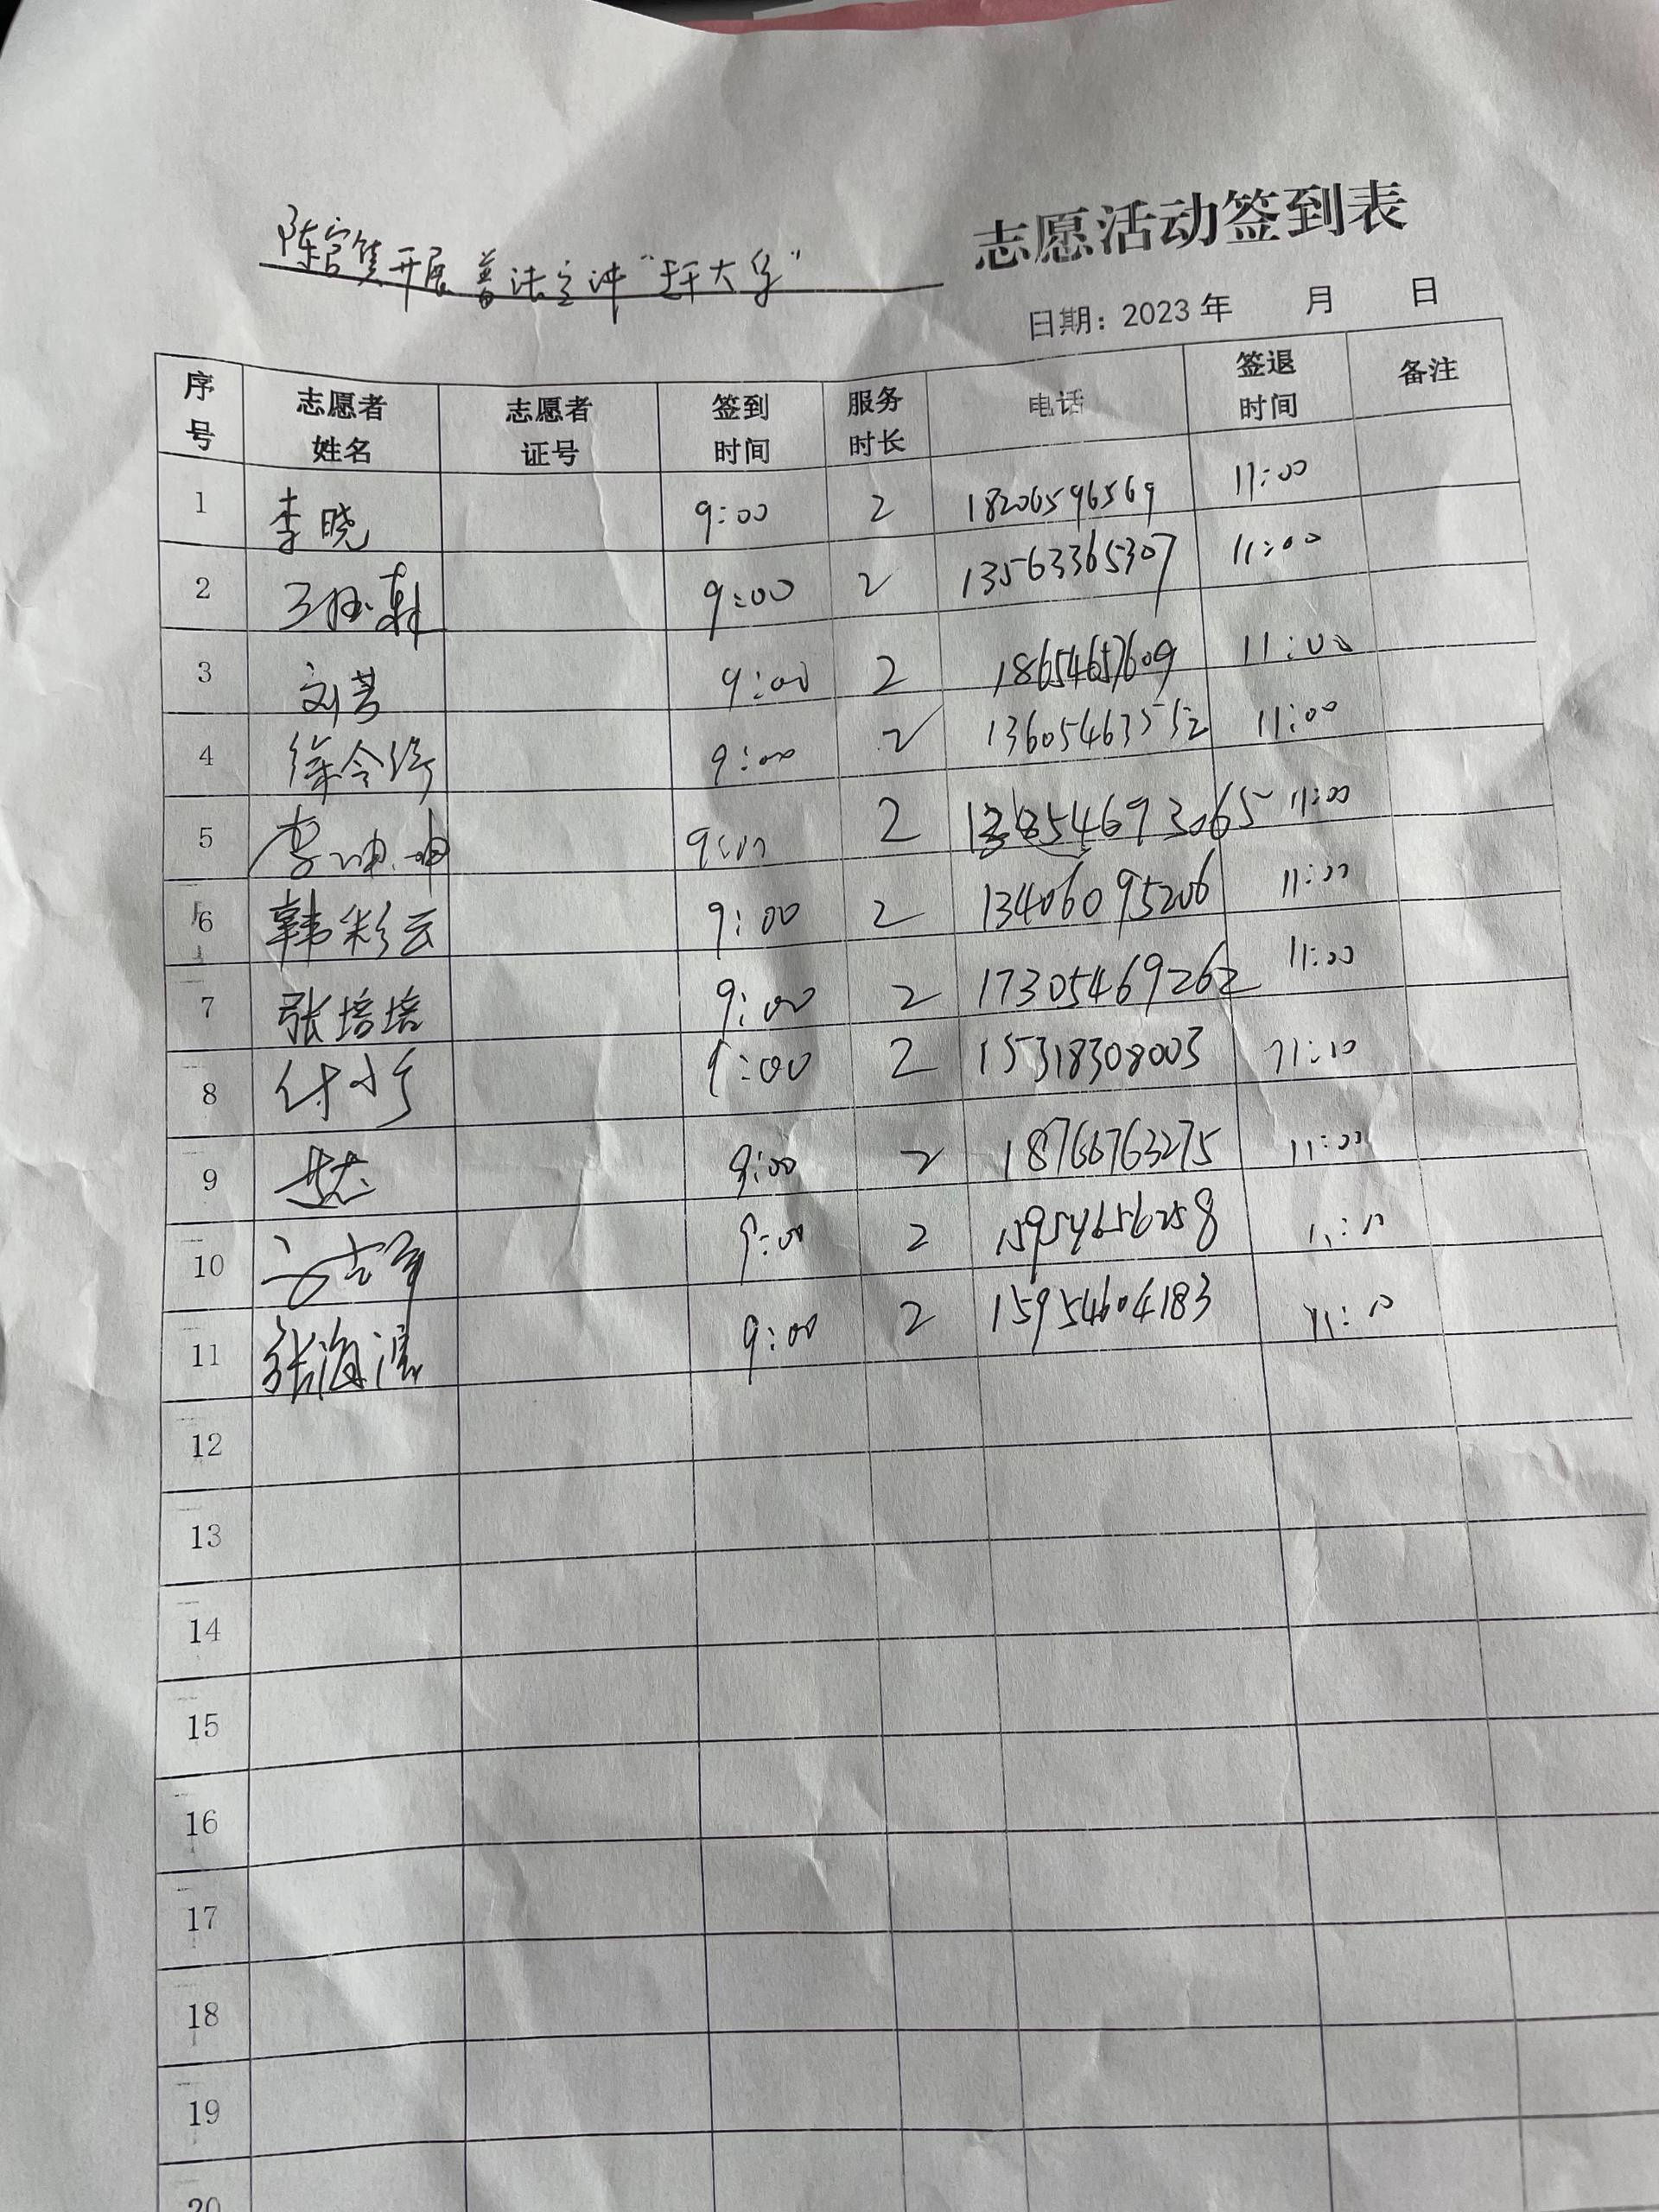 陈官镇开展普法宣讲“赶大集”
志愿活动签到表
日期：2023年 月 日
序号 志愿者姓名 志愿者证号 签到时间 服务时长 电话 签退时间 备注
1 李晓 9:00 2 18206596569 11:00
2 9:00 2 13563365307 11:00
3 刘芳 9:00 2 18654657609 11:00
4 徐令华 9:00 2 13605463552 11:00
5 李坤坤 9:00 2 11:00
6 韩彩云 9:00 2 13406095206 11:00
7 张培培 9:00 2 17305469262 11:00
8 付小 9:00 2 15318308003 11:10
9 9:00 2 18766763275 11:00
10 9:00 2 15954656258 11:10
11 张海滨 9:00 2 15954604183 11:10
12
13
14
15
16
17
18
19
20